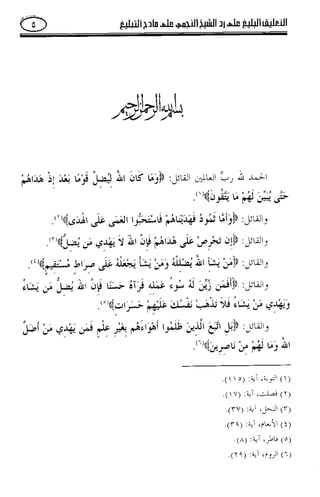 التعليق البليغ على رد الشيخ النجمي على مادح التبليغ
٥
بسم الله الرحمن الرحيم
الحمد لله ربِّ العالمين القائل: ﴿وَمَا كَانَ اللهُ لِيُضِلَّ قَوْمًا بَعْدَ إِذْ هَدَاهُمْ
حَتَّى يُبَيِّنَ لَهُمْ مَا يَتَّقُونَ﴾(١).
والقائل: ﴿وَأَمَّا ثَمُودُ فَهَدَيْنَاهُمْ فَاسْتَحَبُّوا العَمَى عَلَى الْهُدَى﴾(٢).
والقائل: ﴿إِن تَحْرِصْ عَلَى هُدَاهُمْ فَإِنَّ اللهَ لاَ يَهْدِي مَن يُضِلُّ﴾(٣).
والقائل: ﴿مَنْ يَشَأِ اللهُ يُضْلِلْهُ وَمَنْ يَشَأْ يَجْعَلْهُ عَلَى صِرَاطٍ مُسْتَقِيمٍ﴾(٤).
والقائل: ﴿أَفَمَن زُيِّنَ لَهُ سُوءُ عَمَلِهِ فَرَآهُ حَسَنًا فَإِنَّ اللهَ يُضِلُّ مَن يَشَاءُ
وَيَهْدِي مَنْ يَشَاءُ فَلاَ تَذْهَبْ نَفْسُكَ عَلَيْهِمْ حَسَرَاتٍ﴾(٥).
والقائل: ﴿بَلِ اتَّبَعَ الَّذِينَ ظَلَمُوا أَهْوَاءَهُم بِغَيْرِ عِلْمٍ فَمَن يَهْدِي مَنْ أَضَلَّ
اللهُ وَمَا لَهُمْ مِنْ نَاصِرِينَ﴾(٦).
(١) التوبة، آية: (١١٥).
(٢) فصلت، آية: (١٧).
(٣) النحل، آية: (٣٧).
(٤) الأنعام، آية: (٣٩).
(٥) فاطر، آية: (٨).
(٦) الروم، آية: (٢٩).